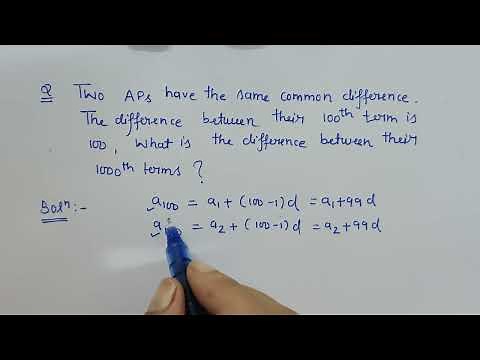 Q Two APs have the same common difference.
The difference between their 100th term is
100, What is the difference between their
1000th terms?
Solⁿ:- a₁₀₀ = a₁ + (100-1)d = a₁+99d
= a₂ + (100-1)d = a₂+99d